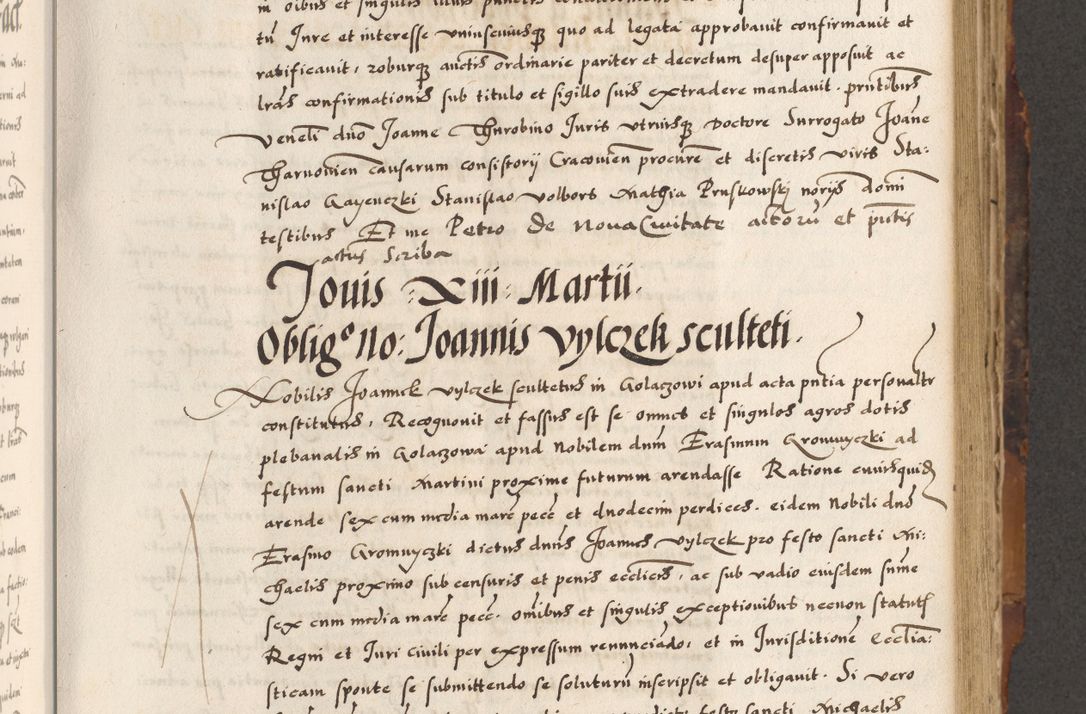 tū Jure et interesse uniuscuiusqȝ quo ad legata approbavit confirmavit et
ratificavit, roburqȝ auctis ordinarie pariter et decretum desuper apposuit ac
lrās confirmationis sub titulo et sigillo suis extradere mandavit. pntibus
Venēli dño Joanne Thurobino Juris utriusqȝ Doctore Surrogato Joāne
Tharnovien causarum consistorij Cracovien procurē et discretis viris Sta:
nislao Gayewczki Stanislao Volbors Mathia Pruskowskj norijs domī
testibus Et me Petro de Nova Civitate actorū et pñtis
actus Scriba
Jovis : Xiii : Martii .
Oblig° No: Joannis Vylczek sculteti .
Nobilis Joannes Vylczek scultetus in Golaczowi apud acta pñtia personalr
constitutus, Recognovit et fassus est se omnes et singulos agros dotis
plebanalis in Golaczowa apud Nobilem dum Erasmum Gromnyczki ad
festum sancti Martini proxime futurum arendasse Ratione cuiusquid
arende sex cum media marc pecc et duodecim perdices. eidem Nobili dno
Erasmo Gromnyczki dictus dnus Joannes Vylczek pro festo sancti Mi:
chaelis proximo sub censuris et penis ecclicis, ac sub vadio eiusdem sūme
sex cum media marc pecc. omibus et singulis exceptionibus necnon statut
Regni et Juri civili per expressum renunciādo, et in Jurisditionē Ecclīa:
sticam sponte se submittendo se soluturū inscripsit et obligavit. Si vero
festo sancti Michaelis